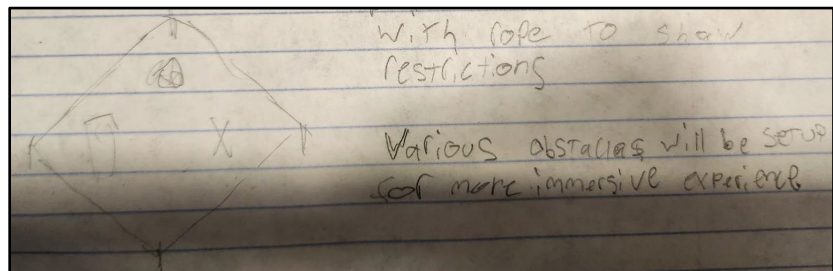 with rope to show
restrictions
Various obstacles will be setup
for more immersive experience